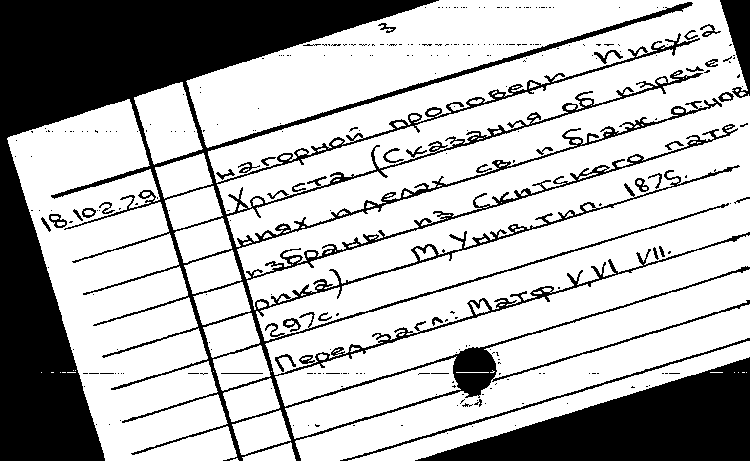 3
нагорной проповеди Иисуса
Христа. (Сказания об изрече-
18.102.79 ниях и делах св. и блаж. отцов
избраны из Скитского пате-
рика). М., Унив. тип., 1875. —
297с.
Перед загл.: Матф. V, VI, VII.